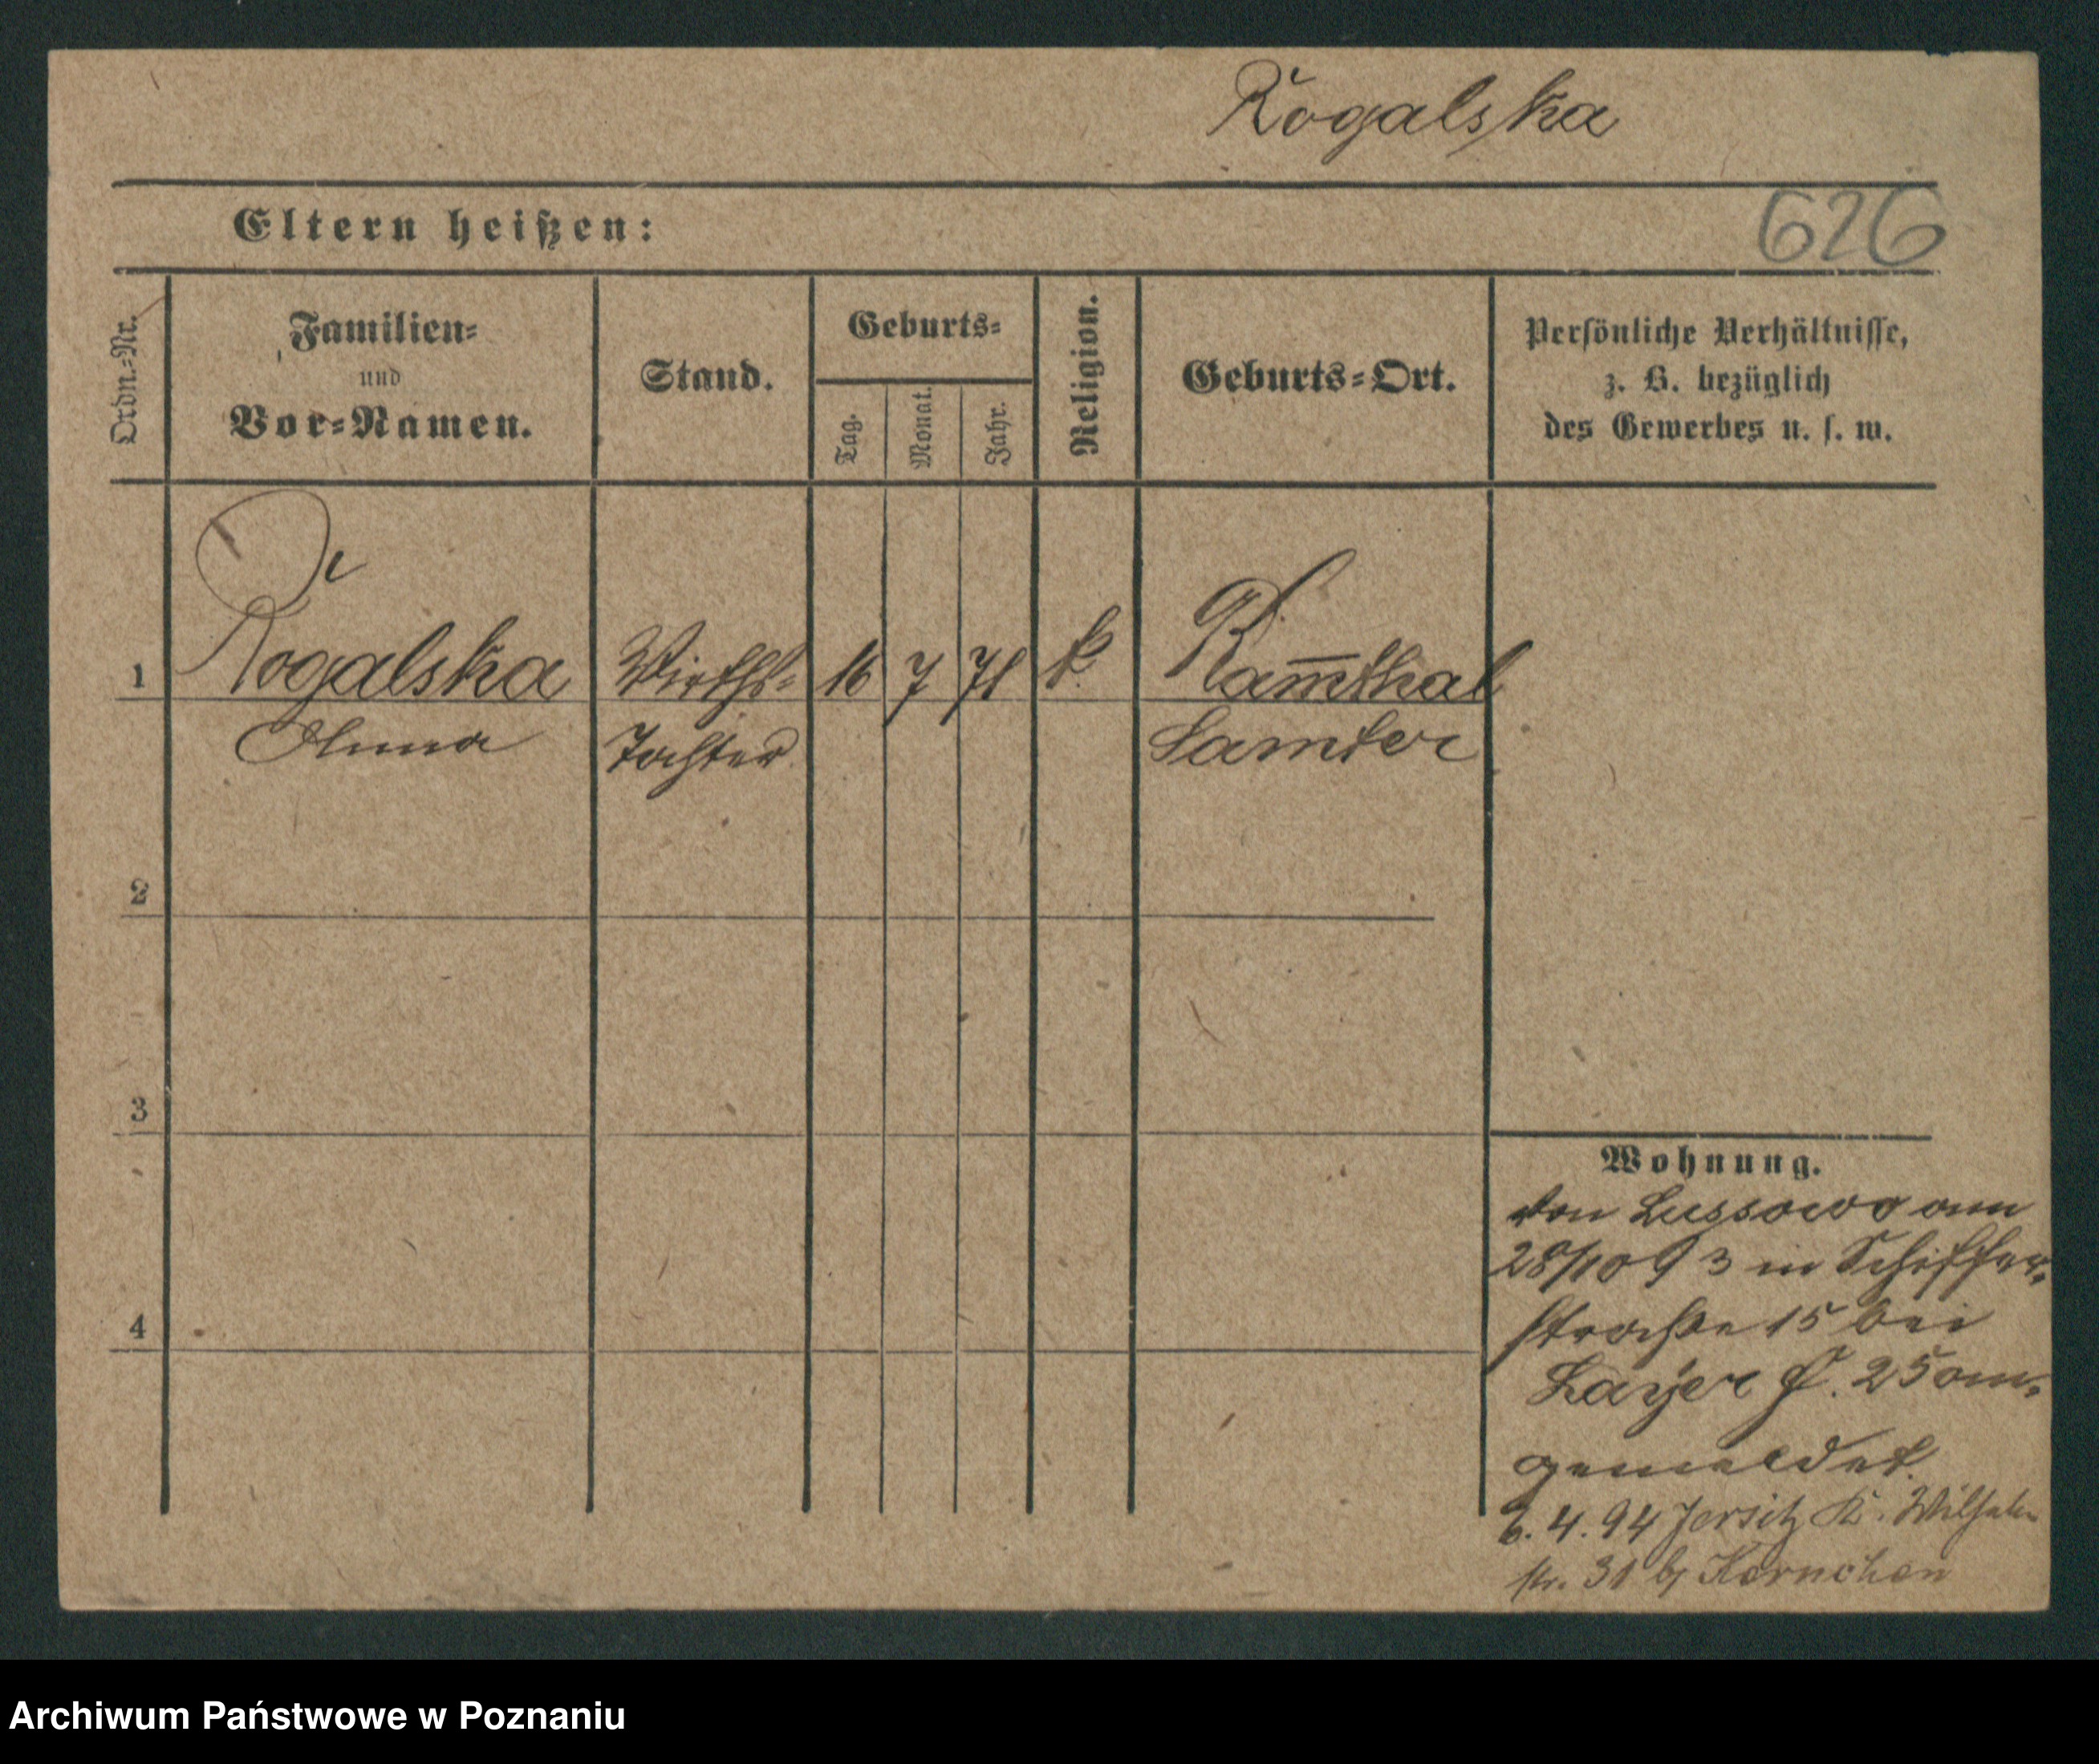 Rogalska
Eltern heißen:
626
Ordn.-Nr.
Familien-
und
Vor-Namen.
Stand.
Geburts-
Tag.
Monat.
Jahr.
Religion.
Geburts-Ort.
Persönliche Verhältnisse,
z. B. bezüglich
des Gewerbes u. s. w.
1 Rogalska Wirths- 16 7 71 k. Ramthal
Anna Tochter Samter
2
3
4
Wohnung.
von Lussowo am
28/10 93 in Schiffer-
straße 15 bei
Layer P. 25 am-
gemeldet.
6. 4. 94 Jersitz K. Wilhelm
str. 31 bj Kornchen
Archiwum Państwowe w Poznaniu